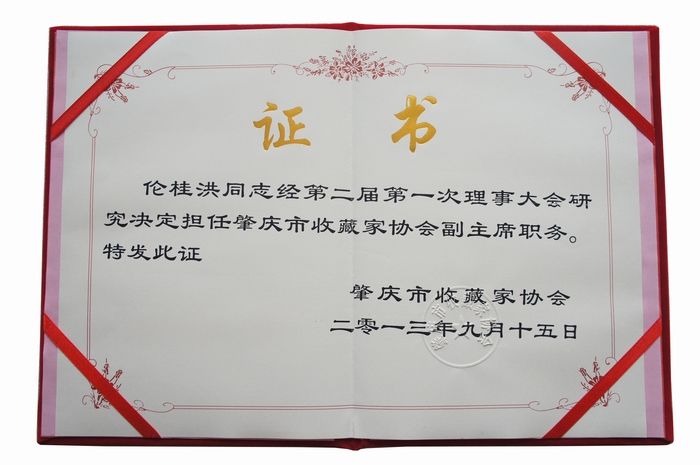 证书
伦桂洪同志经第二届第一次理事大会研
究决定担任肇庆市收藏家协会副主席职务。
特发此证
肇庆市收藏家协会
二零一三年九月十五日